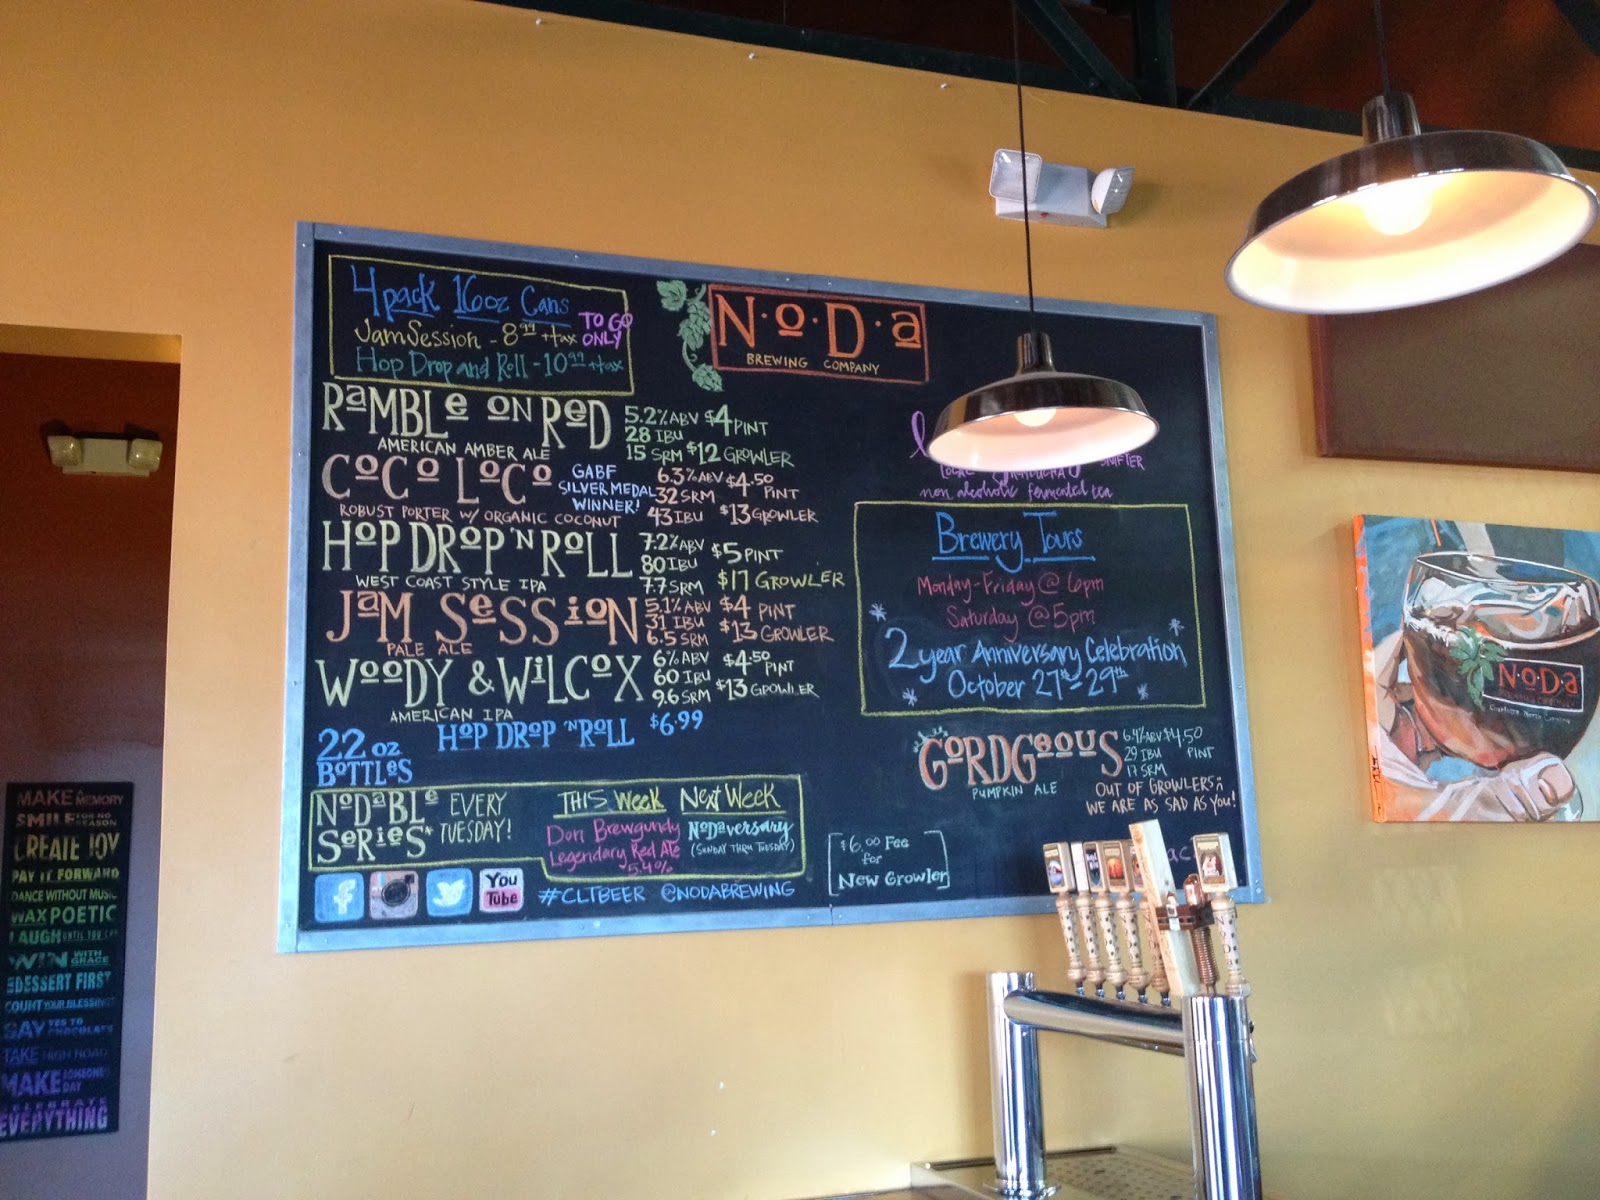 4 pack 16oz Cans
Jam Session - 8.99 + tax
Hop Drop and Roll - 10.99 + tax
TO GO
ONLY
N·o·D·a
BREWING COMPANY
RaMBLe oN ReD
AMERICAN AMBER ALE
5.2% ABV $4 PINT
28 IBU
15 SRM $12 GROWLER
CoCo LoCo
ROBUST PORTER W/ ORGANIC COCONUT
GABF
SILVER MEDAL
WINNER!
6.3% ABV $4.50 PINT
32 SRM
43 IBU $13 GROWLER
HoP DRoP 'N RoLL
WEST COAST STYLE IPA
7.2% ABV $5 PINT
80 IBU
7.7 SRM $17 GROWLER
JaM SeSSioN
PALE ALE
5.1% ABV $4 PINT
31 IBU
6.5 SRM $13 GROWLER
WooDY & WiLCoX
AMERICAN IPA
6% ABV $4.50 PINT
60 IBU
9.6 SRM $13 GROWLER
22 oz
BoTTLeS
HoP DRoP 'N RoLL $6.99
NoDaBLe
SeRieS*
EVERY
TUESDAY!
THIS Week
Don Brewgundy
Legendary Red Ale
5.4%
Next Week
NoDaversary
(SUNDAY THRU TUESDAY)
You
Tube
#CLTBEER @NODABREWING
SNIFTER
non alcoholic fermented tea
Brewery Tours
Monday-Friday @ 6pm
Saturday @ 5pm
2 year Anniversary Celebration
October 27th - 29th
GoRDGeouS
PUMPKIN ALE
6.4% ABV $4.50
29 IBU PINT
17 SRM
OUT OF GROWLERS
WE ARE AS SAD AS YOU!
$6.00 Fee
for
New Growler
N·o·D·a
MAKE A MEMORY
SMILE FOR NO SEASON
CREATE JOY
PAY IT FORWARD
DANCE WITHOUT MUSIC
WAX POETIC
LAUGH UNTIL YOU CRY
WIN WITH GRACE
DESSERT FIRST
COUNT YOUR BLESSINGS
SAY YES TO CHOCOLATE
TAKE HIGH ROAD
MAKE SOMEONE'S DAY
CELEBRATE
EVERYTHING